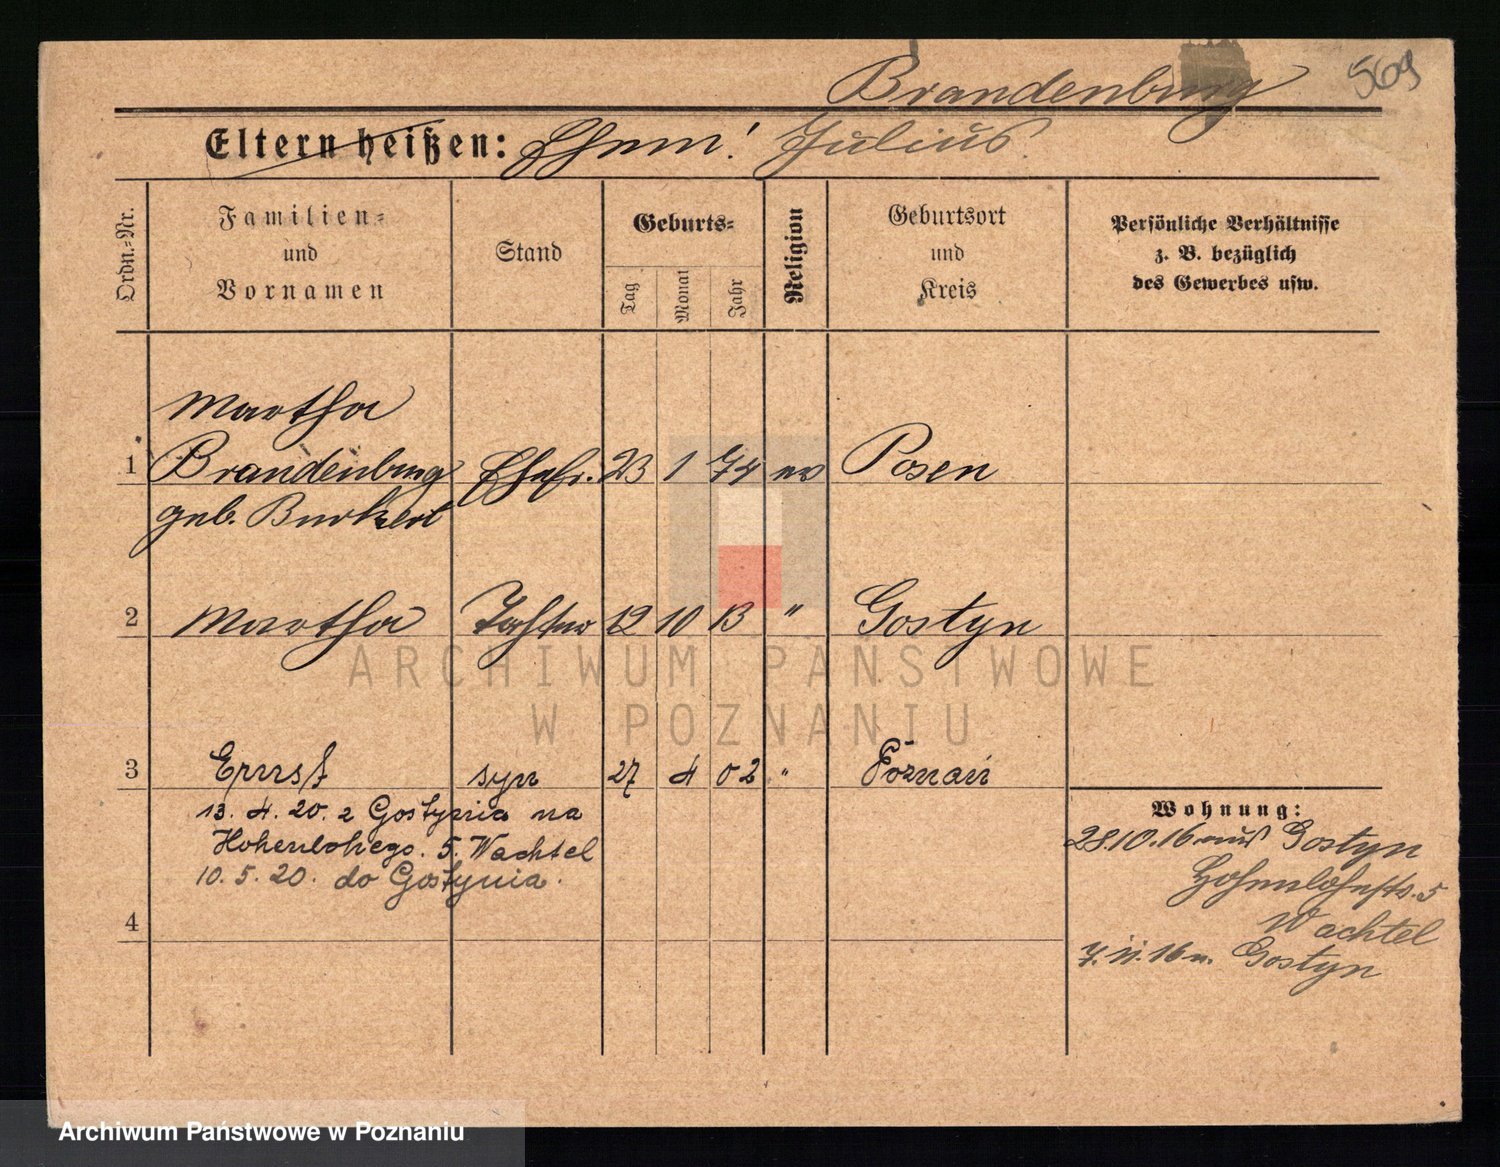 Brandenburg 569
Eltern heißen: Ehem! Julius.
Ordn.-Nr.
Familien-
und
Vornamen
Stand
Geburts-
Tag
Monat
Jahr
Religion
Geburtsort
und
Kreis
Persönliche Verhältnisse
z. B. bezüglich
des Gewerbes usw.
Martha
1 Brandenburg Ehefr. 23 1 74 ev Posen
geb. Burkert
2 Martha Tochter 12 10 13 " Gostyn
ARCHIWUM PAŃSTWOWE
W POZNANIU
3 Ernst syn 27 4 02 " Poznań
13. 4. 20. z Gostynia na
Hohenlohego. 5. Wachtel
10. 5. 20. do Gostynia.
4
Wohnung:
28.10.16 aus Gostyn
Hohenlohestr. 5
Wachtel
7. 11. 16 n. Gostyn
Archiwum Państwowe w Poznaniu